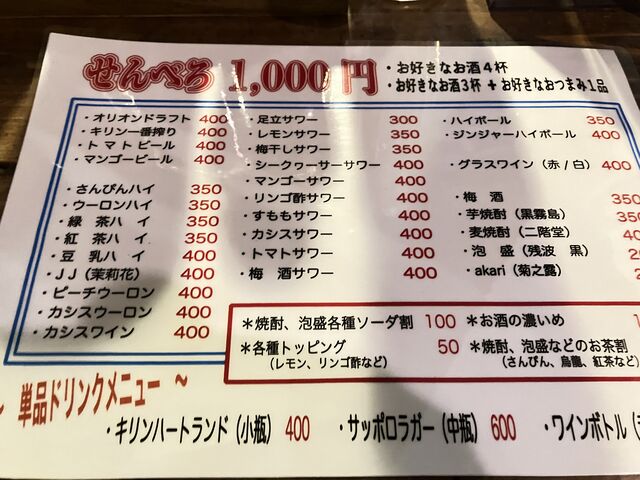 せんべろ 1,000円
・お好きなお酒4杯
・お好きなお酒3杯 + お好きなおつまみ1品
・オリオンドラフト 400
・キリン一番搾り 400
・トマトビール 400
・マンゴービール 400
・さんぴんハイ 350
・ウーロンハイ 350
・緑茶ハイ 350
・紅茶ハイ 350
・豆乳ハイ 400
・JJ(茉莉花) 400
・ピーチウーロン 400
・カシスウーロン 400
・カシスワイン 400
・足立サワー 300
・レモンサワー 350
・梅干しサワー 350
・シークヮーサーサワー 400
・マンゴーサワー 400
・リンゴ酢サワー 400
・すももサワー 400
・カシスサワー 400
・トマトサワー 400
・梅酒サワー 400
・ハイボール 350
・ジンジャーハイボール 400
・グラスワイン(赤/白) 400
・梅酒 350
・芋焼酎(黒霧島) 350
・麦焼酎(二階堂) 40
・泡盛(残波 黒)
・akari(菊之露)
*焼酎、泡盛各種ソーダ割 100
*各種トッピング 50
(レモン、リンゴ酢など)
*お酒の濃いめ 1
*焼酎、泡盛などのお茶割
(さんぴん、烏龍、紅茶など)
~ 単品ドリンクメニュー ~
・キリンハートランド(小瓶) 400
・サッポロラガー(中瓶) 600
・ワインボトル(